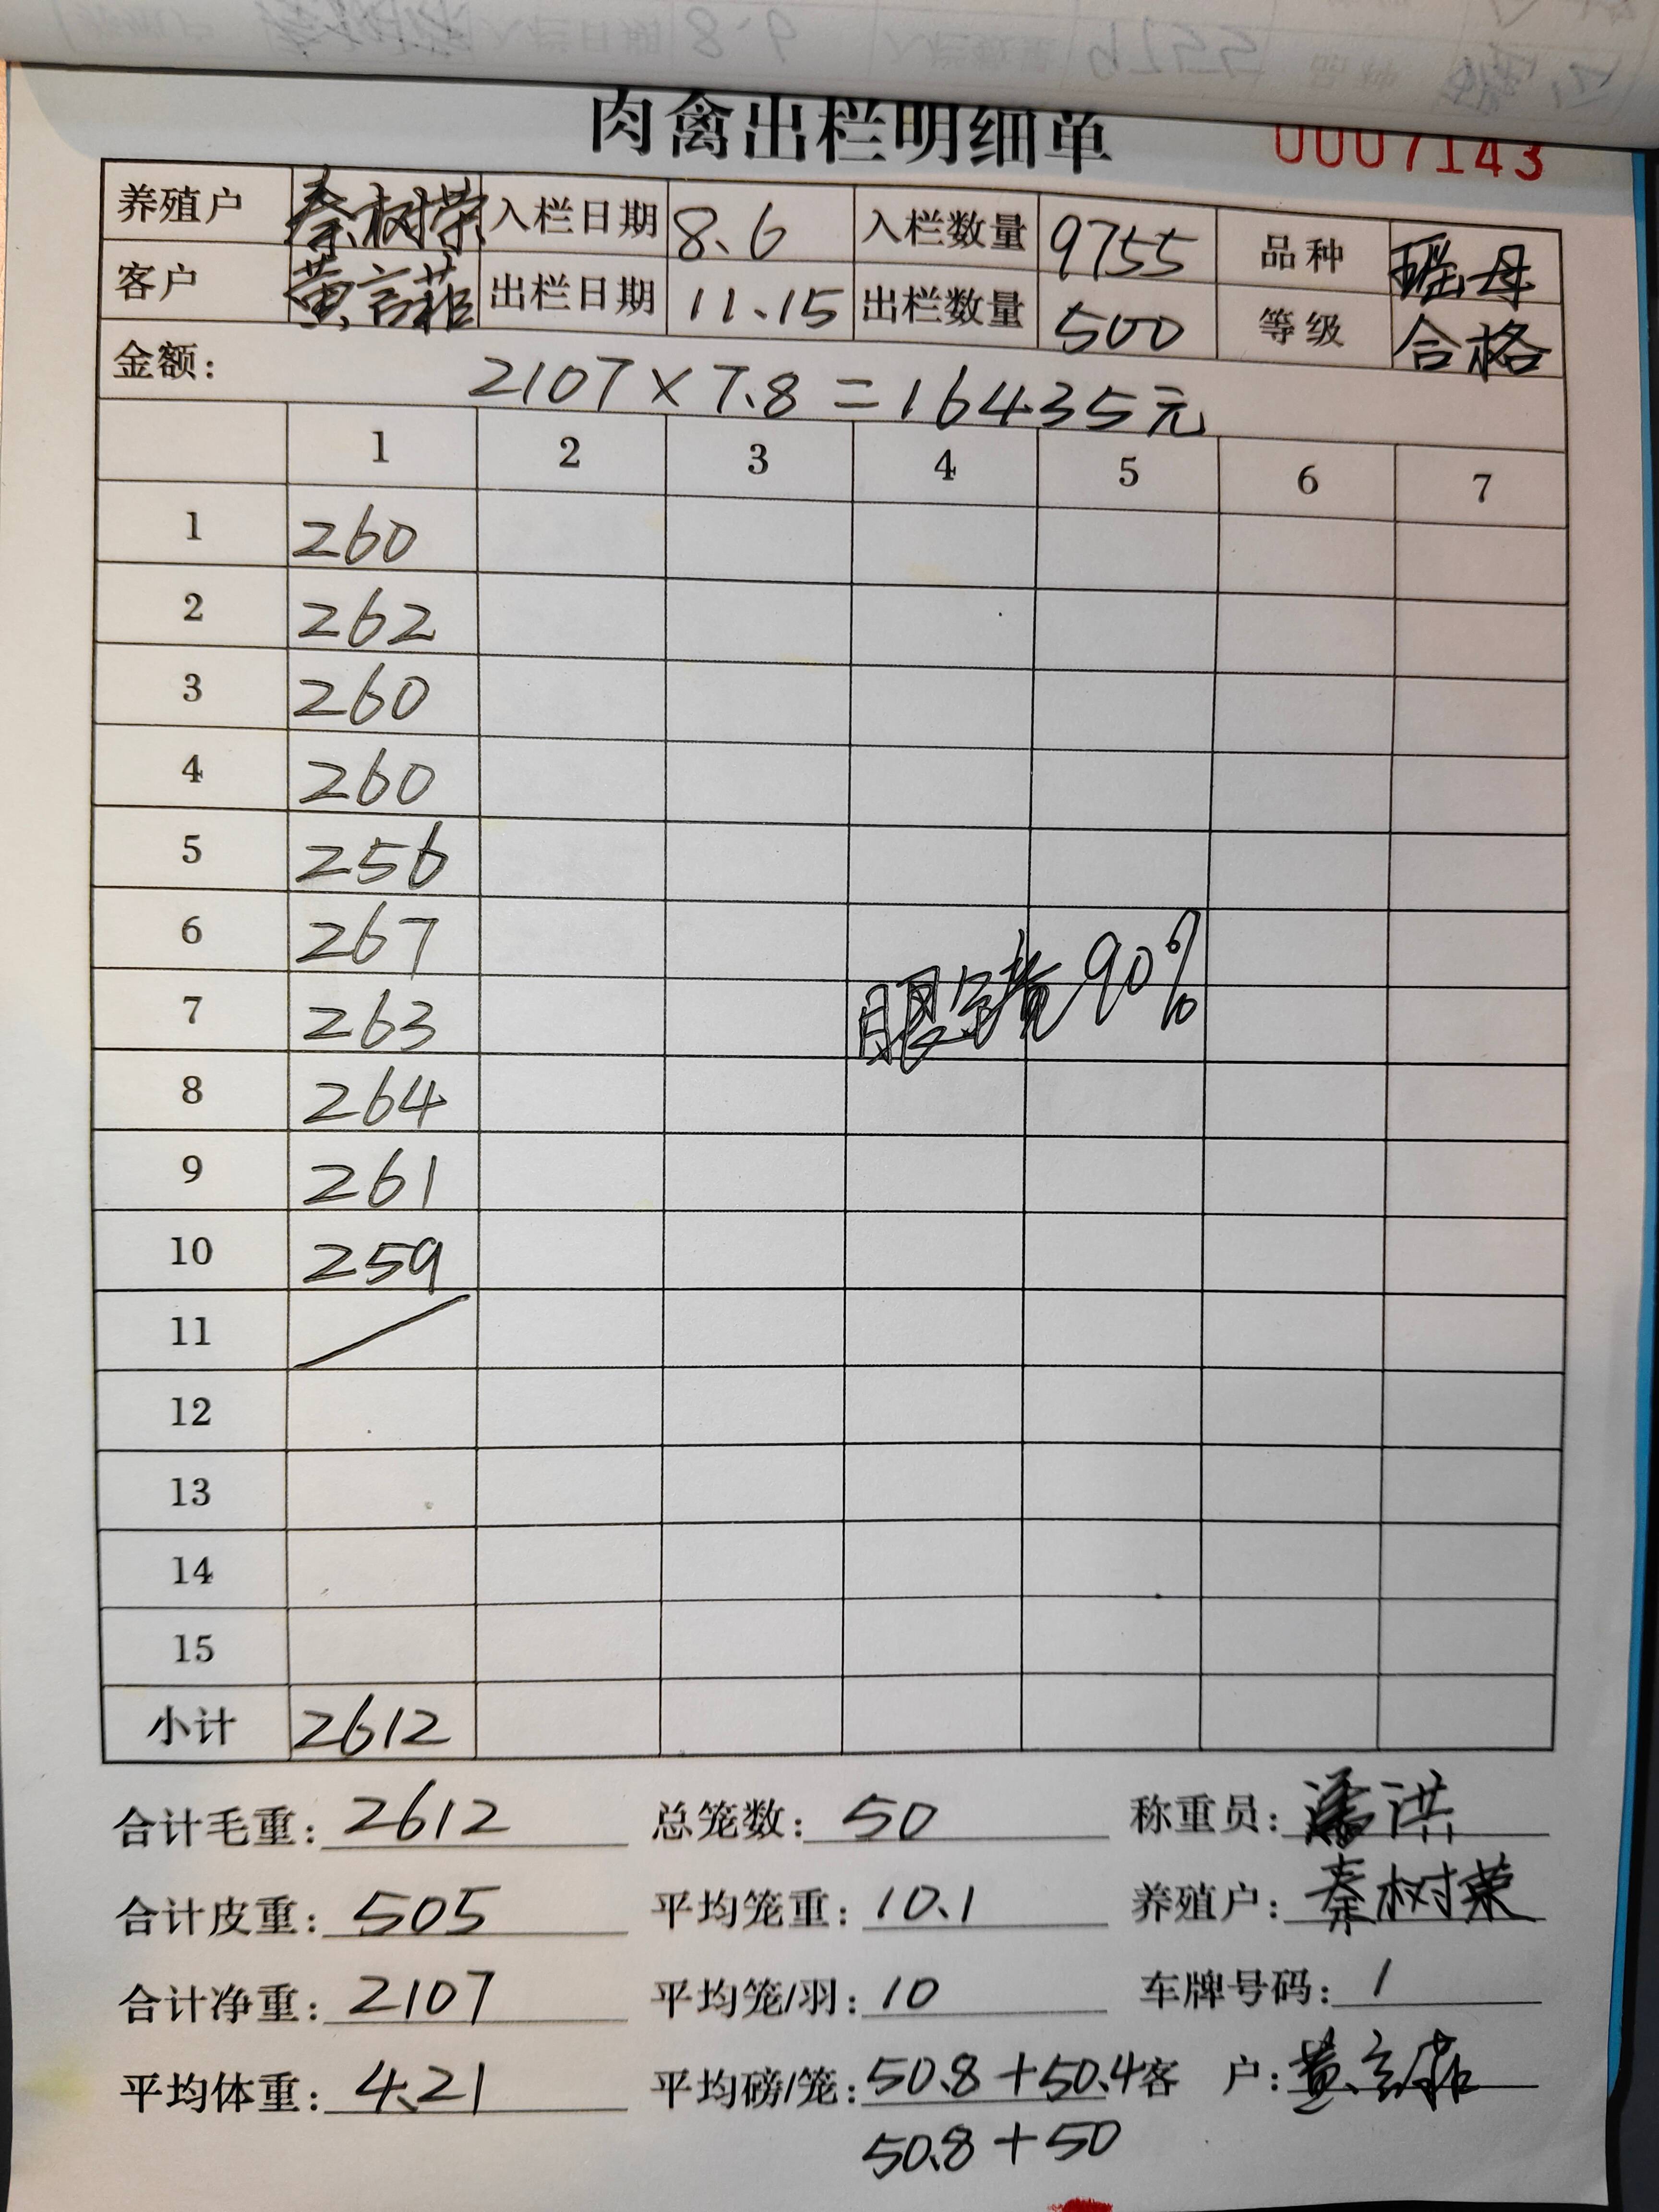 肉禽出栏明细单 0007143
养殖户 秦树荣 入栏日期 8.6 入栏数量 9755 品种 瑶母
客户 黄言 出栏日期 11.15 出栏数量 500 等级 合格
金额: 2107×7.8=16435元
1 2 3 4 5 6 7
1 260
2 262
3 260
4 260
5 256
6 267
7 263
眼 90%
8 264
9 261
10 259
11 /
12
13
14
15
小计 2612
合计毛重: 2612 总笼数: 50 称重员: 潘洪
合计皮重: 505 平均笼重: 10.1 养殖户: 秦树荣
合计净重: 2107 平均笼/羽: 10 车牌号码: 1
平均体重: 4.21 平均磅/笼: 50.8+50.4 客 户: 黄言
50.8+50